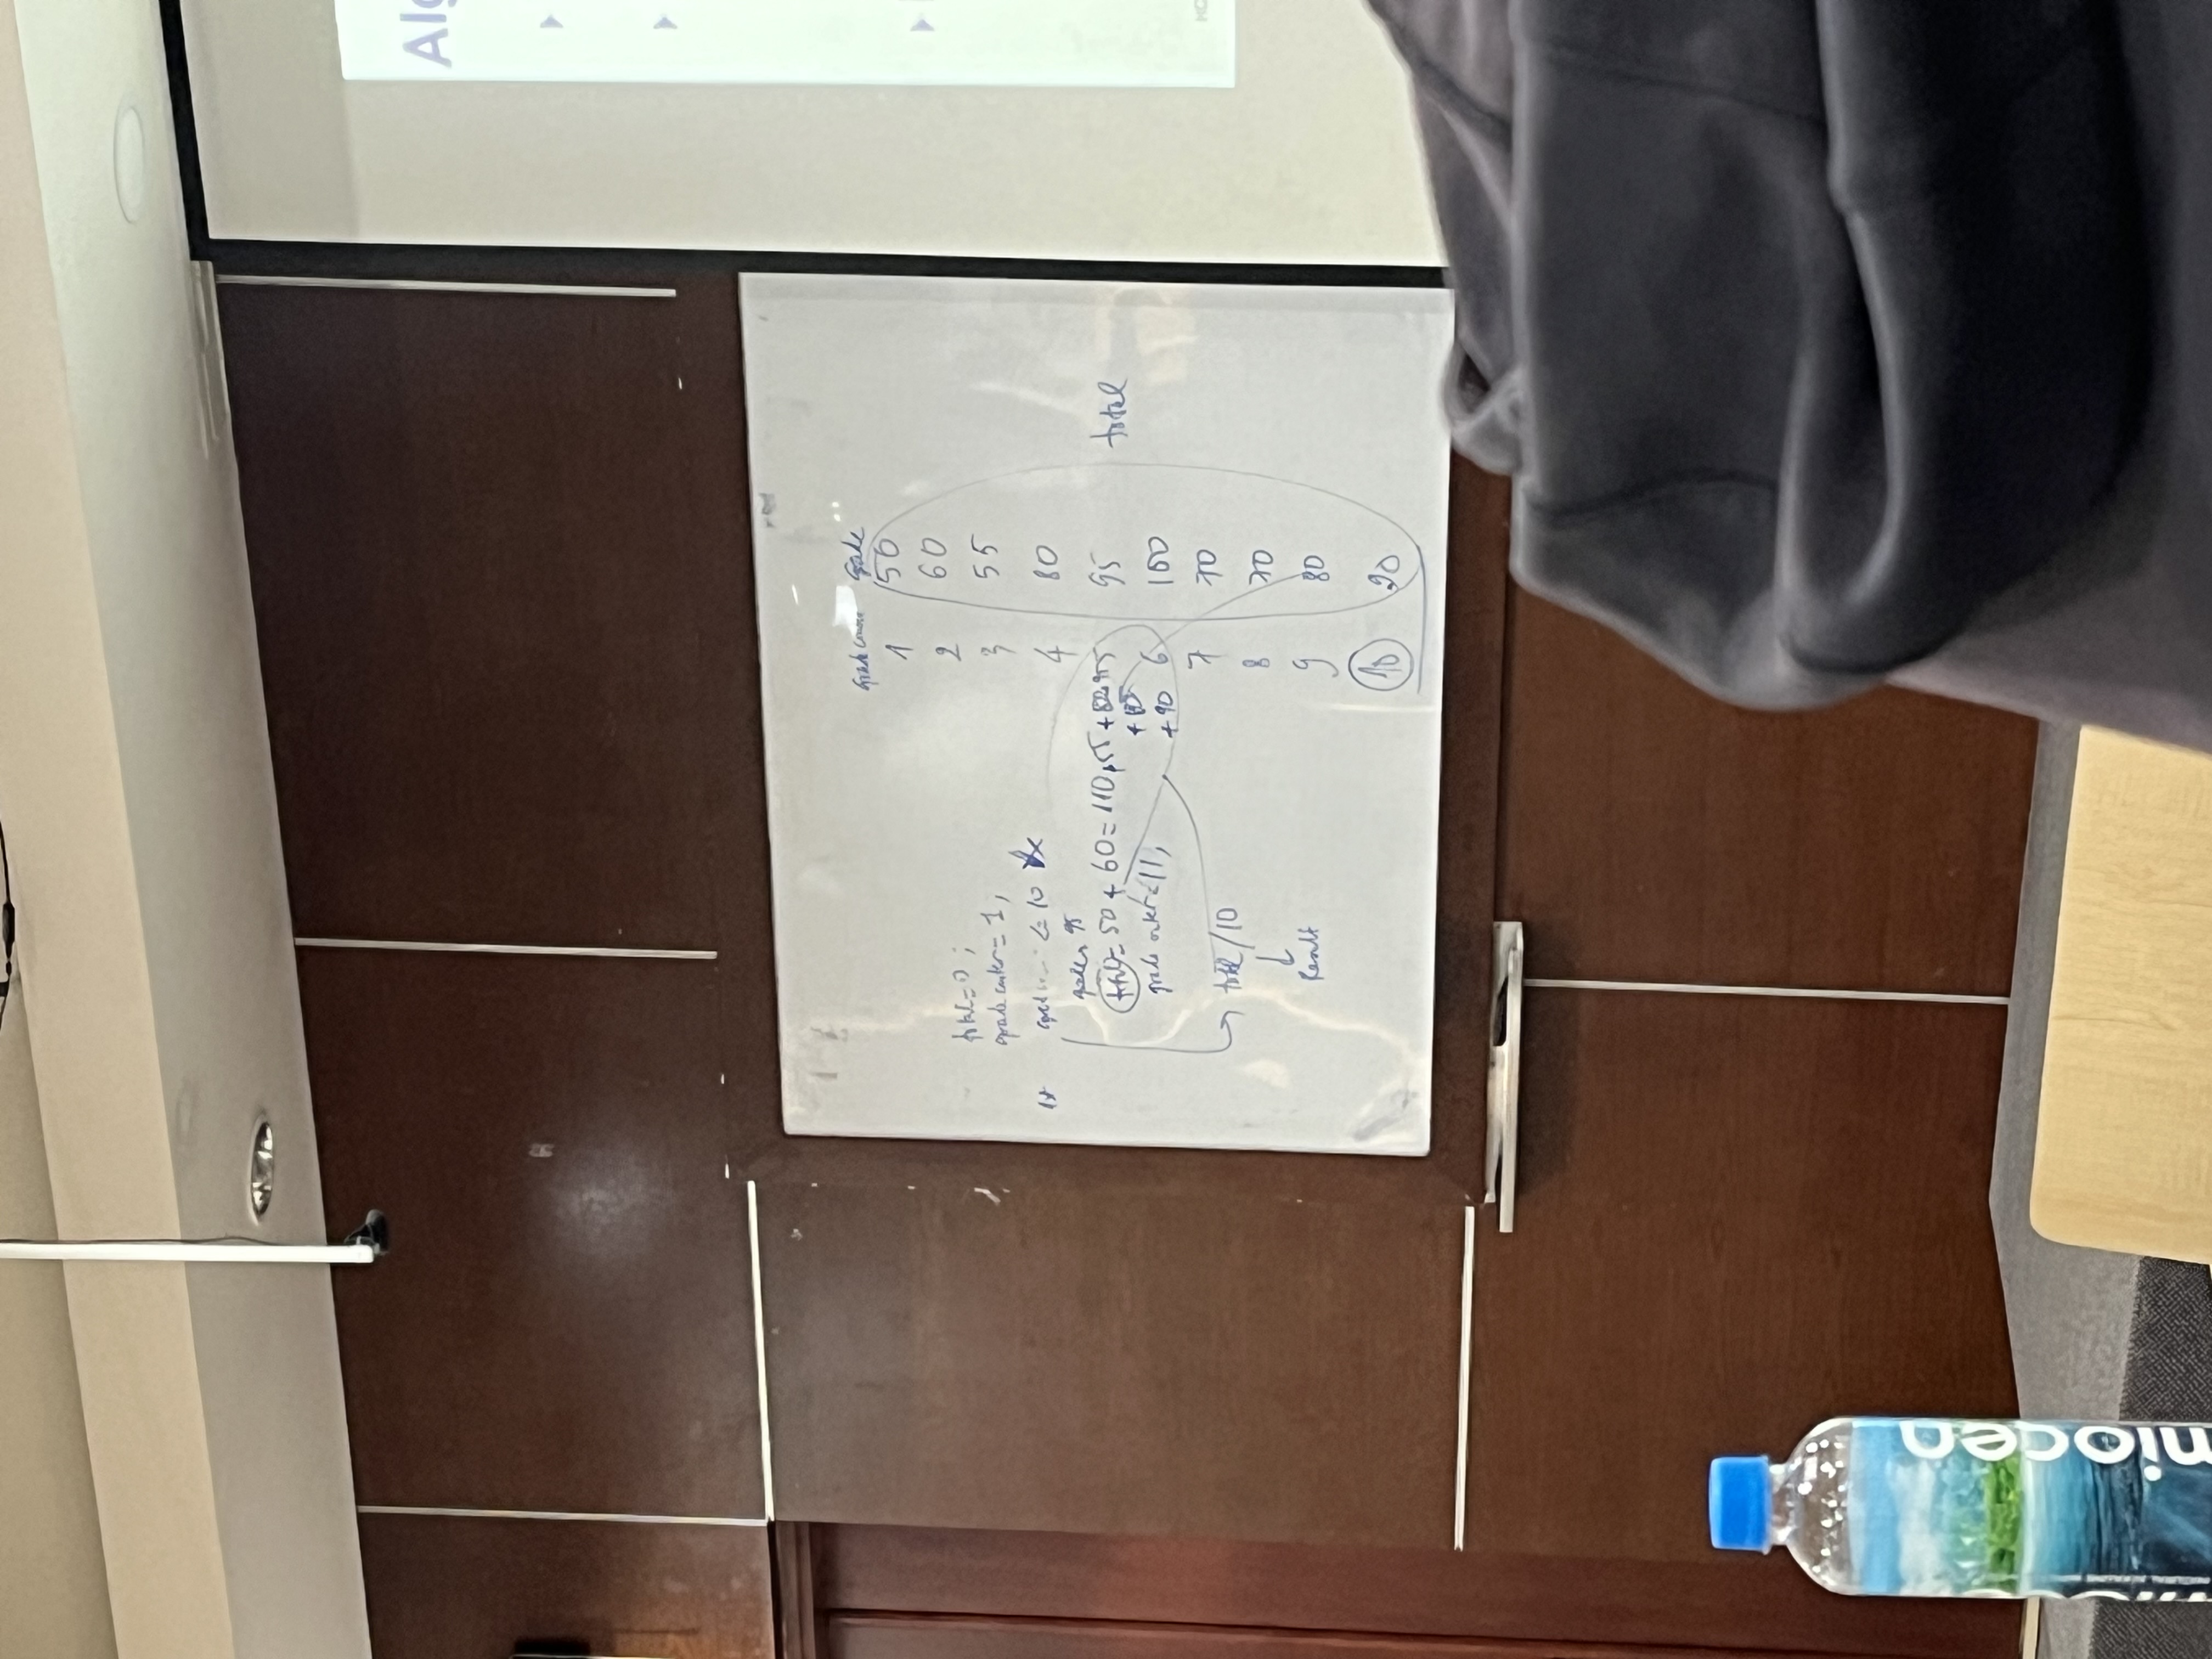 total=0;
grade counter=1,
1st <= 10
grade= 95
total= 50 + 60=110,55 +80,95
+90
grade counter=11,
total/10
Result
grade counter grade
1 50
2 60
3 55
4 80
95
6 100
7 70
8 70
9 80
10 90
total
Alg
miocen